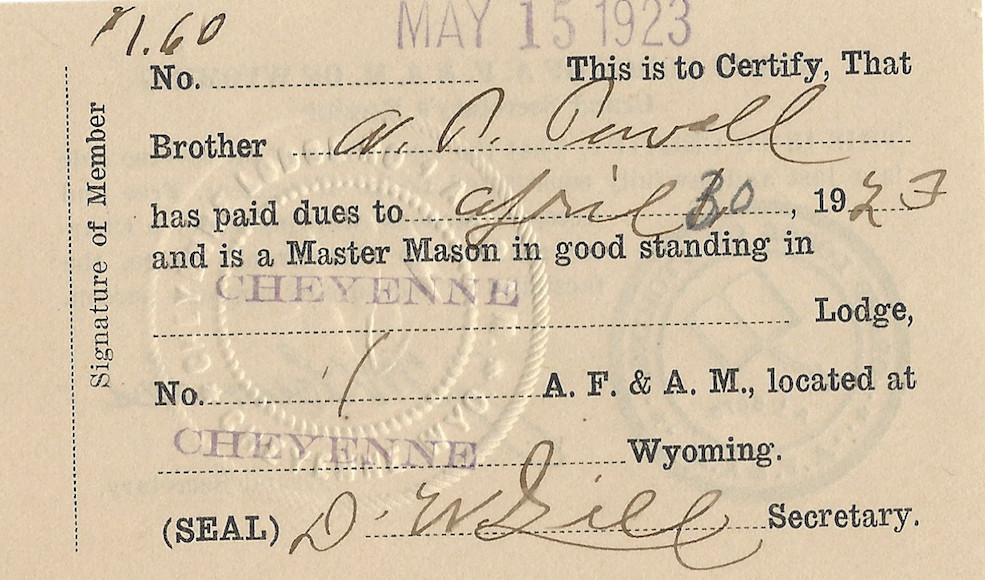 $1.60
MAY 15 1923
No. This is to Certify, That
Brother W. P. Powell
has paid dues to April 30, 1923
and is a Master Mason in good standing in
CHEYENNE
Lodge,
No. 1 A. F. & A. M., located at
CHEYENNE Wyoming.
(SEAL) D. W. Gill Secretary.
Signature of Member